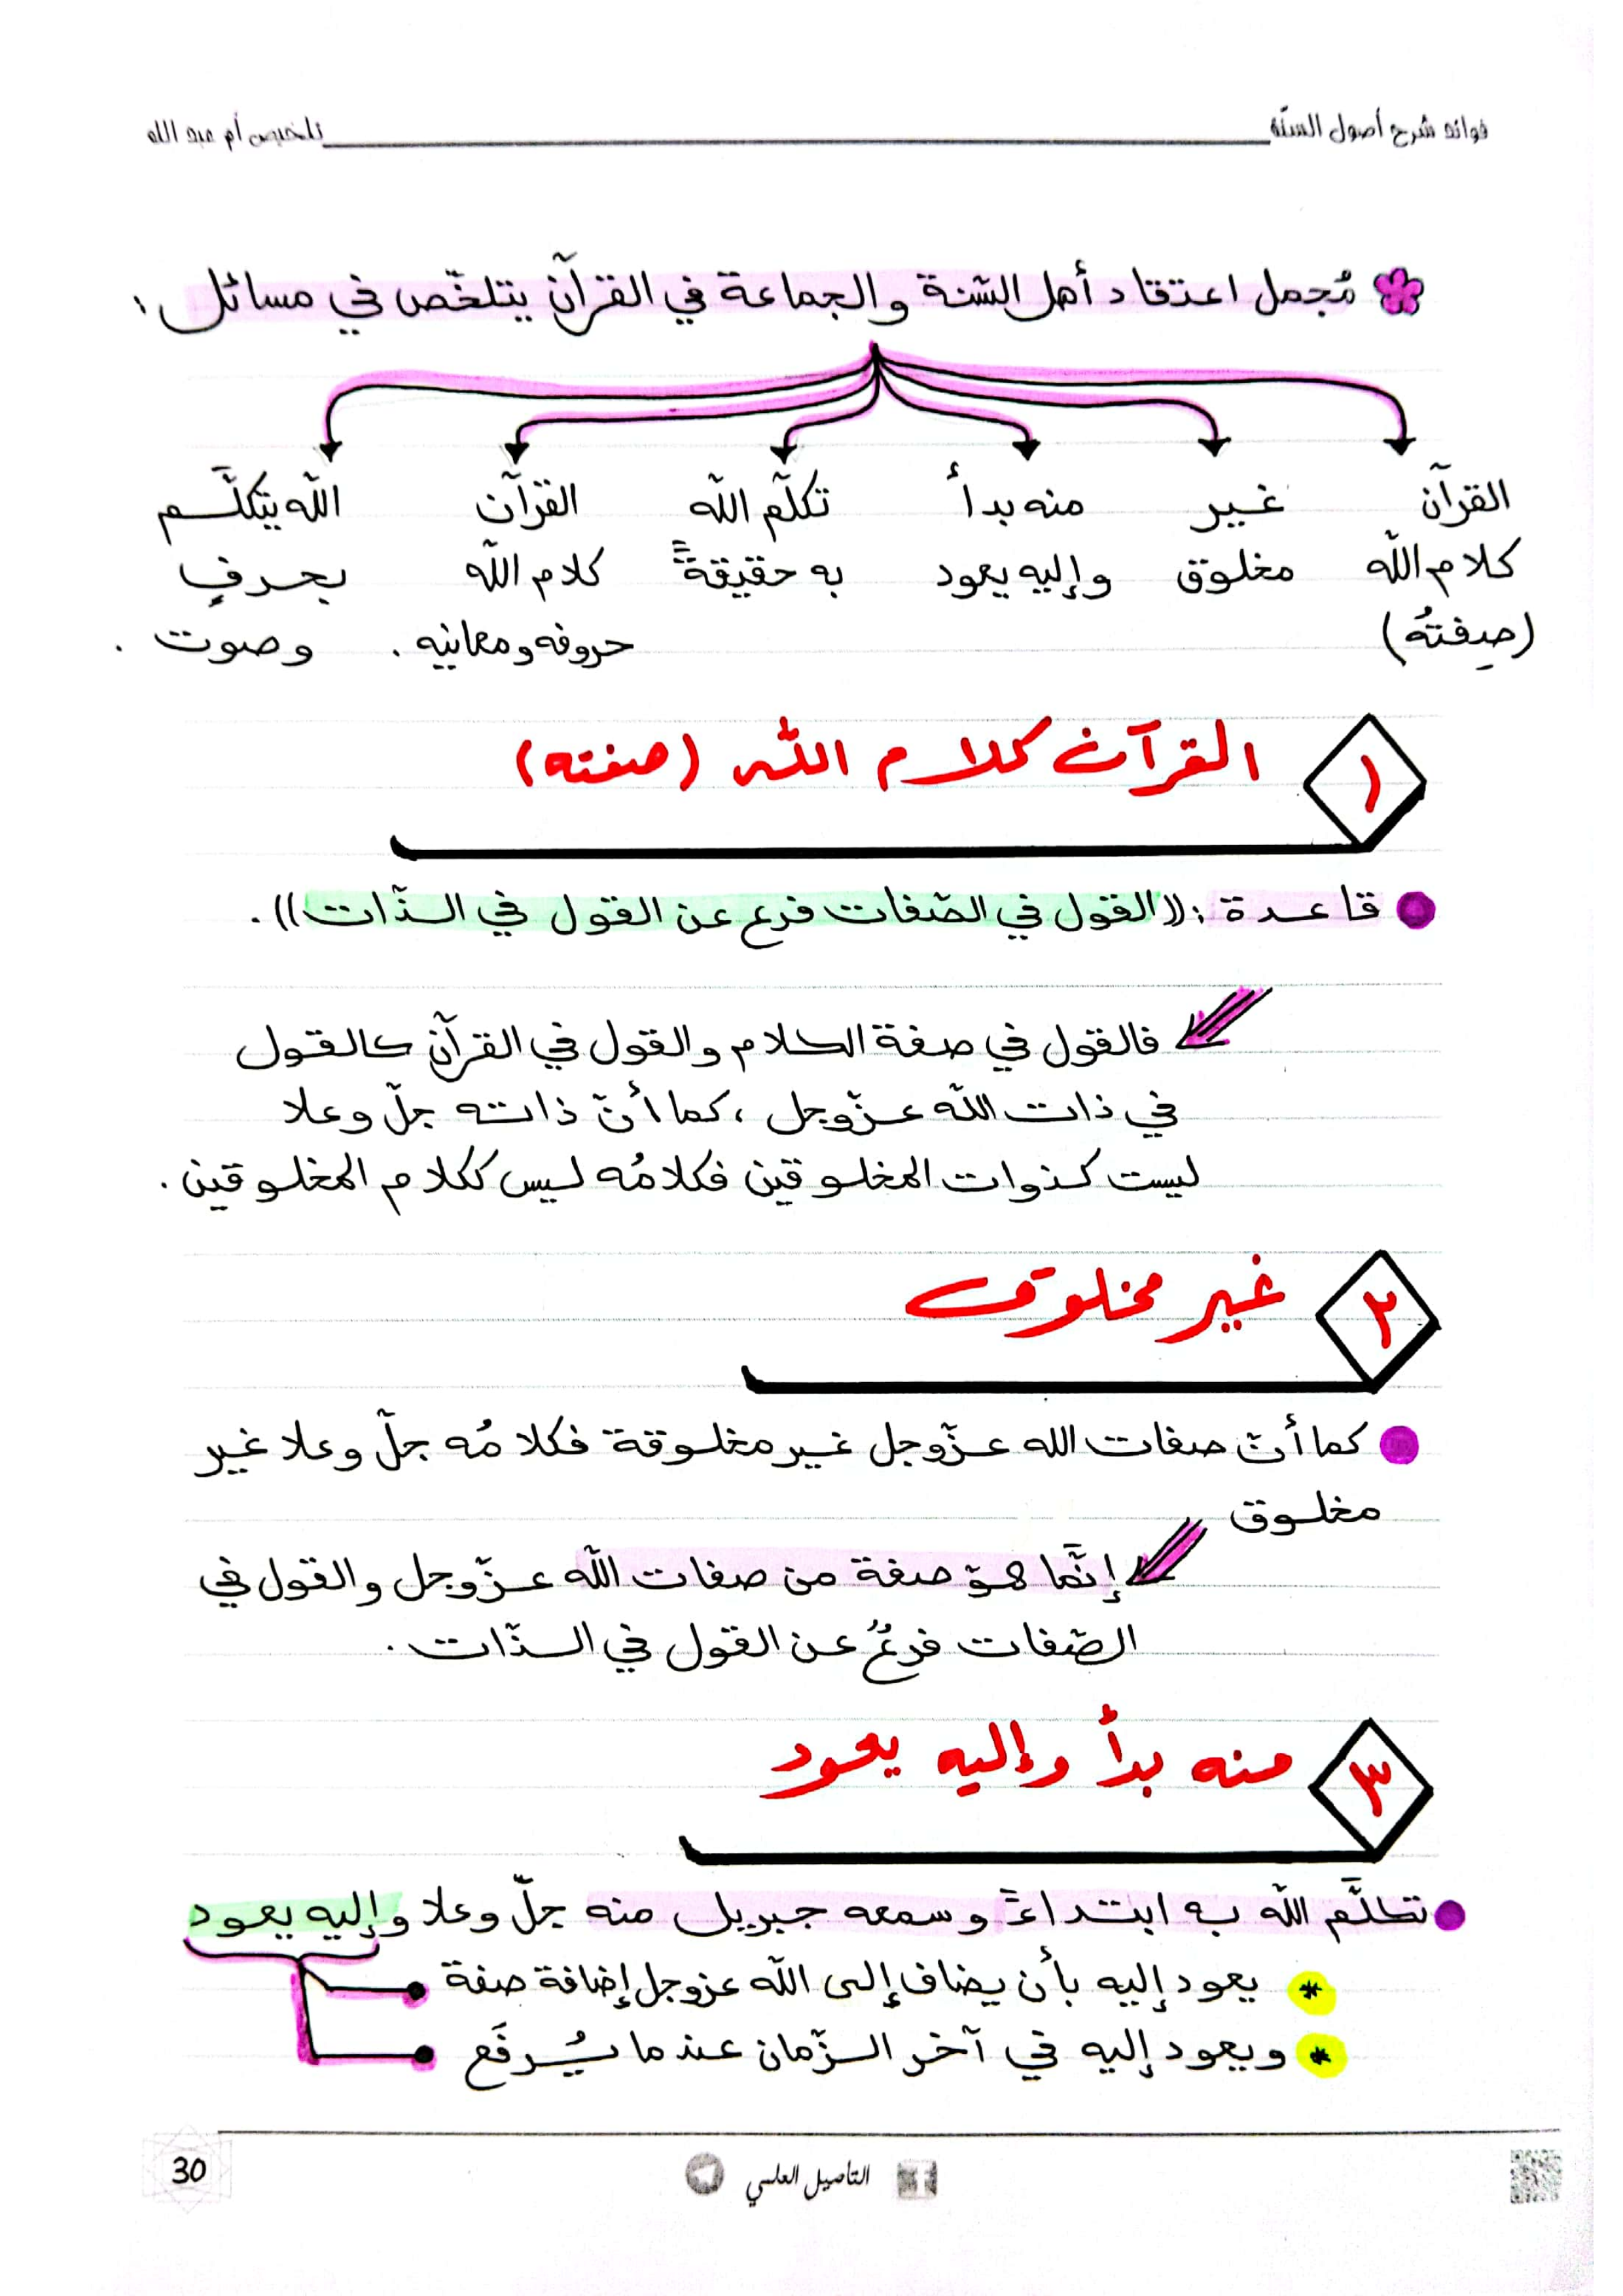 فوائد شرح أصول السنّة تلخيص أم عبد الله
مُجمل اعتقاد أهل السّنة والجماعة في القرآن يتلخّص في مسائل :
القرآن غير منه بدأ تكلّم الله القرآن الله يتكلَّم
كلام الله مخلوق وإليه يعود به حقيقةً كلام الله بحرفٍ
(صِفتهُ) حروفه ومعانيه . وصوت .
١ القرآن كلام الله (صفته)
قاعدة : ((القول في الصّفات فرع عن القول في الذّات)) .
فالقول في صفة الكلام والقول في القرآن كالقول
في ذات الله عزّوجل ، كما أنّ ذاته جلّ وعلا
ليست كذوات المخلوقين فكلامُه ليس ككلام المخلوقين .
٢ غير مخلوق
كما أنّ صفات الله عزّوجل غير مخلوقة فكلامُه جلّ وعلا غير
مخلوق
إنَّما هو صفة من صفات الله عزّوجل والقول في
الصّفات فرعٌ عن القول في الذّات .
٣ منه بدأ وإليه يعود
تكلَّم الله به ابتداءً وسمعه جبريل منه جلّ وعلا وإليه يعود
* يعود إليه بأن يضاف إلى الله عزوجل إضافة صفة
* ويعود إليه في آخر الزّمان عندما يُرفَع
التأصيل العلمي
30